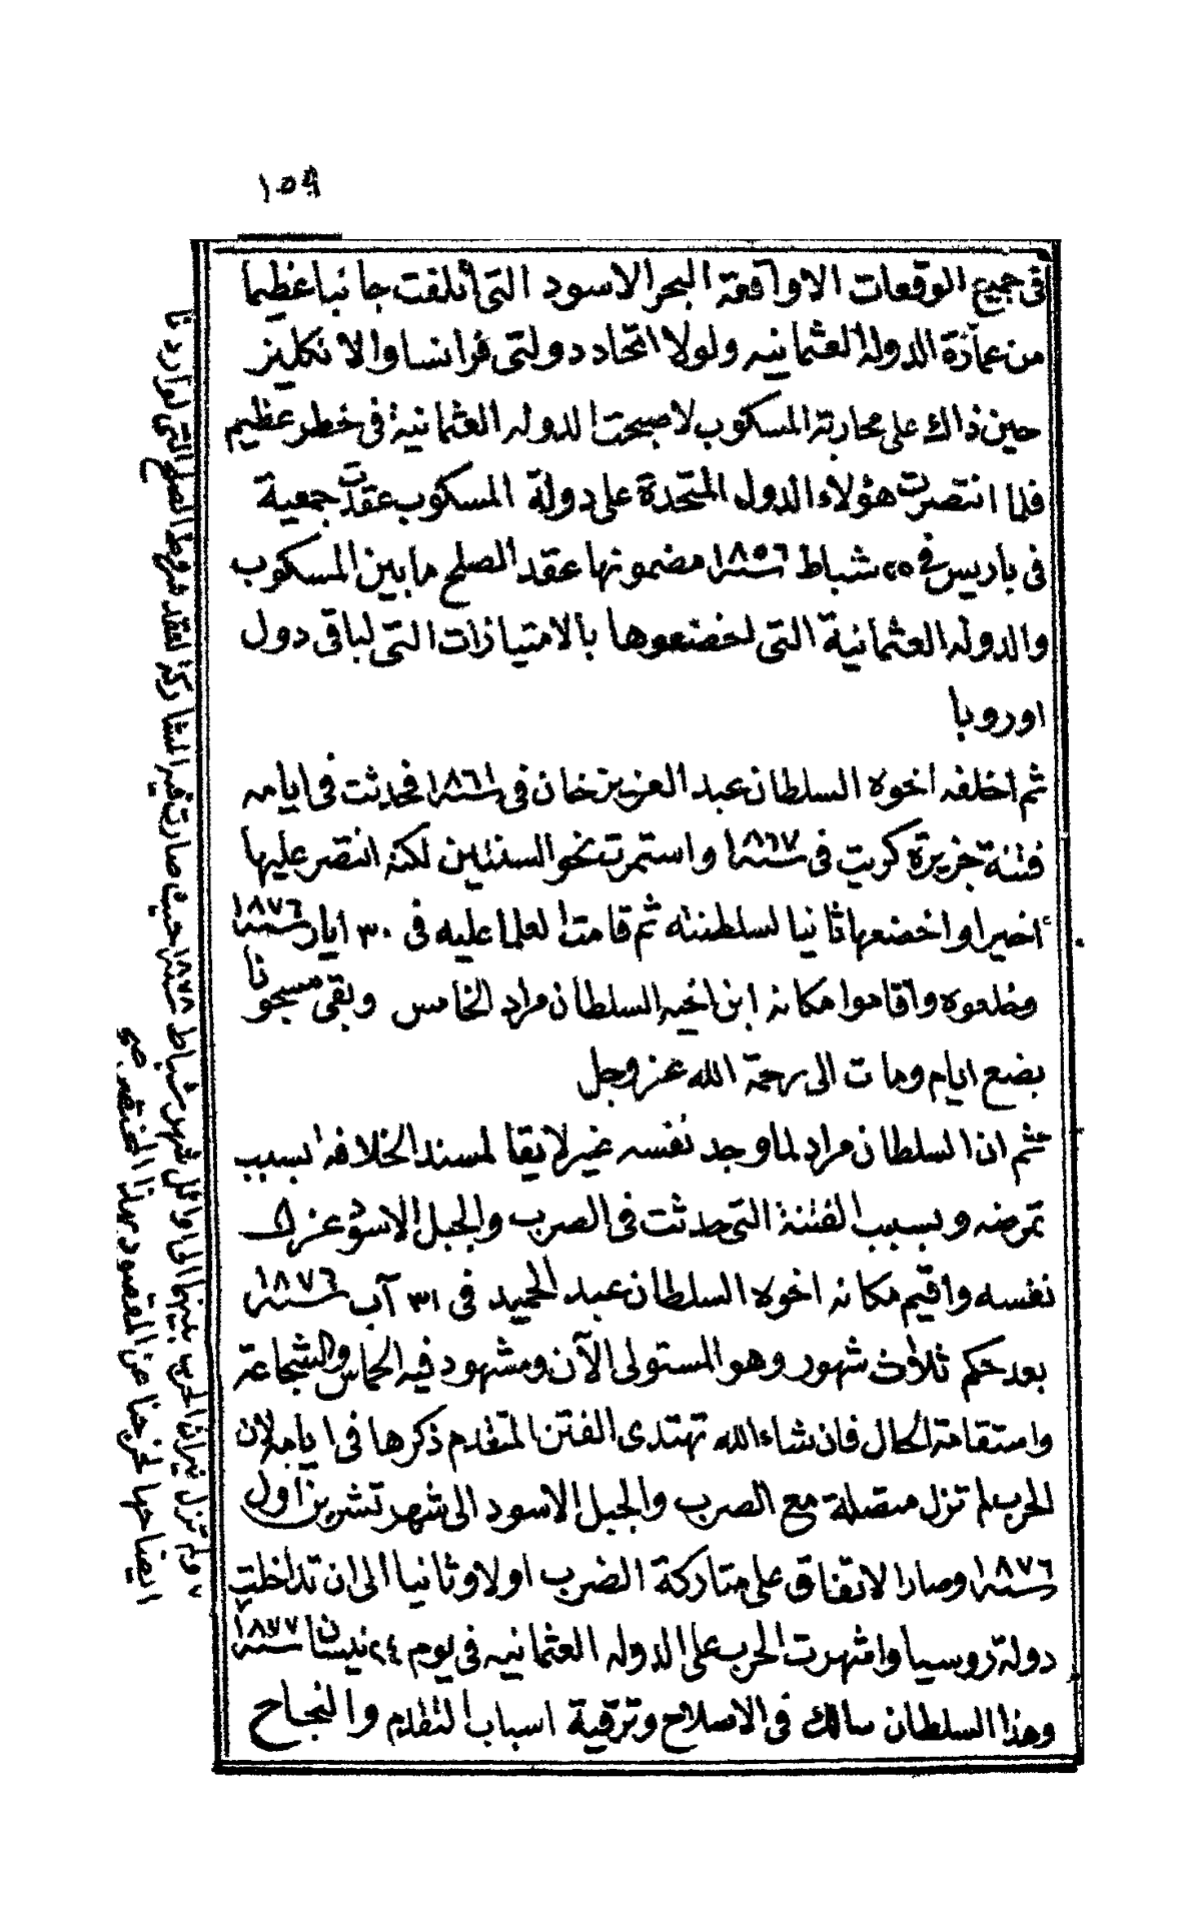 ١٥٩
في جميع الوقعات الا واقعة البحر الاسود التي أتلفت جانبا عظيما
من عمارة الدولة العثمانيه ولولا اتحاد دولتي فرانسا والانكليز
حين ذاك على محاربة المسكوب لاصبحت الدوله العثمانية في خطر عظيم
فلما انتصرت هؤلاء الدول المتحدة على دولة المسكوب عقدت جمعية
في باريس في ٢٥ شباط سنة ١٨٥٦ مضمونها عقد الصلح ما بين المسكوب
والدوله العثمانية التي خضعوها بالامتيازات التي لباقي دول
اوروبا
ثم اخلفه اخوه السلطان عبد العزيز خان في سنة ١٨٦١ فحدثت في ايامه
فتنة جزيرة كريت في سنة ١٨٦٧ واستمرت نحو السنتين لكنه انتصر عليها
اخيرا واخضعها ثانيا لسلطنته ثم قامت العلما عليه في ٣٠ ايار سنة ١٨٧٦
وخلعوه واقاموا مكانه ابن اخيه السلطان مراد الخامس وبقي مسجونا
بضع ايام ومات الى رحمة الله عز وجل
ثم ان السلطان مراد لما وجد نفسه غير لايقا لمسند الخلافه بسبب
تمرضه وبسبب الفتنة التي حدثت في الصرب والجبل الاسود عزل
نفسه واقيم مكانه اخوه السلطان عبد الحميد في ٣١ آب سنة ١٨٧٦
بعد حكم ثلاث شهور وهو المستولى الآن ومشهود فيه الحماس والشجاعة
وامتقامة الحال فان شاء الله تهتدى الفتن المتقدم ذكرها في ايامه لان
الحرب لم تزل متصلة مع الصرب والجبل الاسود الى شهر تشرين اول
سنة ١٨٧٦ وصار الاتفاق على متاركة الضرب اولا وثانيا الى ان تداخلت
دولة روسيا واشهرت الحرب على الدوله العثمانيه في يوم ٢٤ نيسان سنة ١٨٧٧
وهذا السلطان سالك في الاصلاح وترقية اسباب التقدم والنجاح
ولم تزل نيران الحرب بينهما الى اوائل شهر شباط سنة ١٨٧٨ حيث صارت لعقد شروط الصلح التي لو اردنا
ايضاحها لخرجنا عن المقصود بهذا المختصر